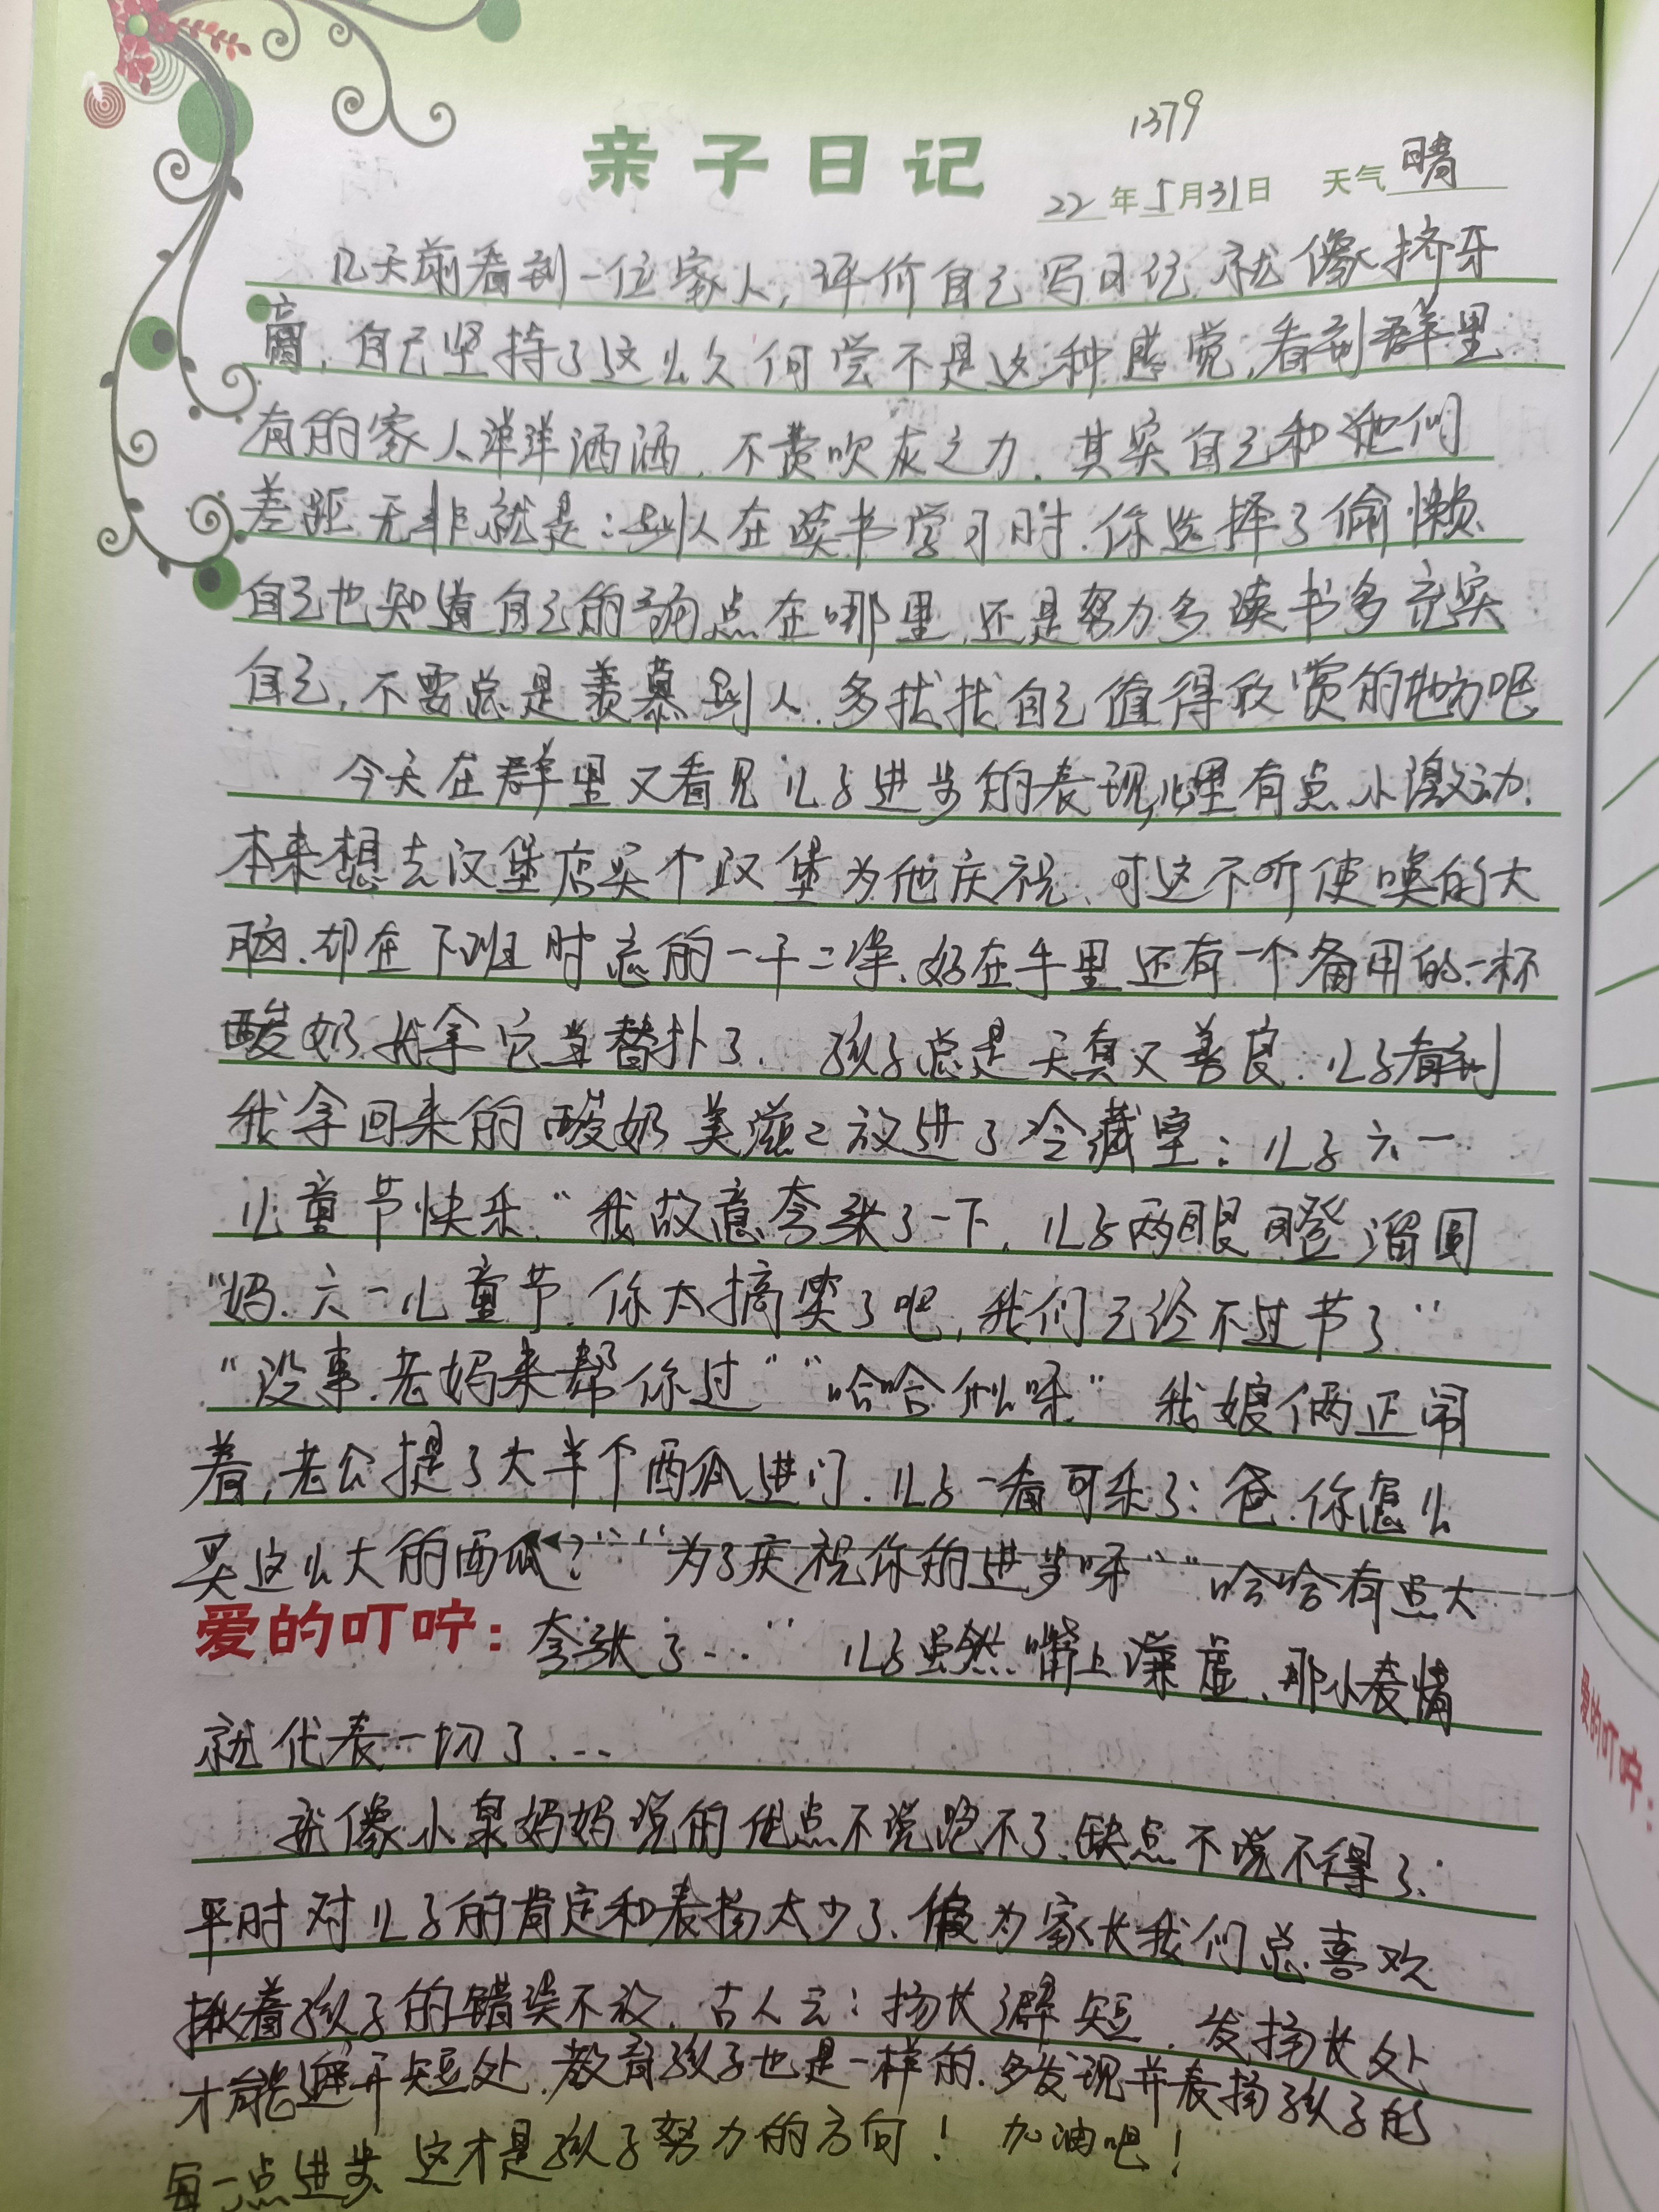 1379
亲子日记
22年5月31日 天气晴
几天前看到一位家人,评价自己写日记就像挤牙
膏,自己坚持了这么久何尝不是这种感觉,看到群里
有的家人洋洋洒洒,不费吹灰之力.其实自己和她们
差距无非就是:别人在读书学习时.你选择了偷懒.
自己也知道自己的弱点在哪里.还是努力多读书多充实
自己,不要总是羡慕别人.多找找自己值得欣赏的地方吧
今天在群里又看见儿子进步的表现,心里有点小激动.
本来想去汉堡店买个汉堡为他庆祝、可这不听使唤的大
脑.却在下班时忘的一干二净.好在车里还有一个备用的一杯
酸奶.我拿它当替补了. 孩子总是天真又善良.儿子看到
我拿回来的酸奶美滋々放进了冷藏室:儿子六一
儿童节快乐."我故意夸张了一下.儿子两眼瞪溜圆
"妈.六一儿童节.你太搞笑了吧,我们已经不过节了"
"没事.老妈来帮你过""哈哈 呀"我娘俩正闹
着,老公提了大半个西瓜进门.儿子一看可乐了:爸.你怎么
买这么大的西瓜?""为了庆祝你的进步呀""哈哈有点大
爱的叮咛: 夸张了..." 儿子虽然嘴上谦虚、那小表情
就代表一切了...
就像小泉妈妈说的优点不说跑不了.缺点不说不得了.
平时对儿子的肯定和表扬太少了、做为家长我们总喜欢
揪着孩子的错误不放.古人云:扬长避短.发扬长处
才能避开短处.教育孩子也是一样的.多发现并表扬孩子的
每一点进步 这才是孩子努力的方向! 加油吧!
爱的叮咛: